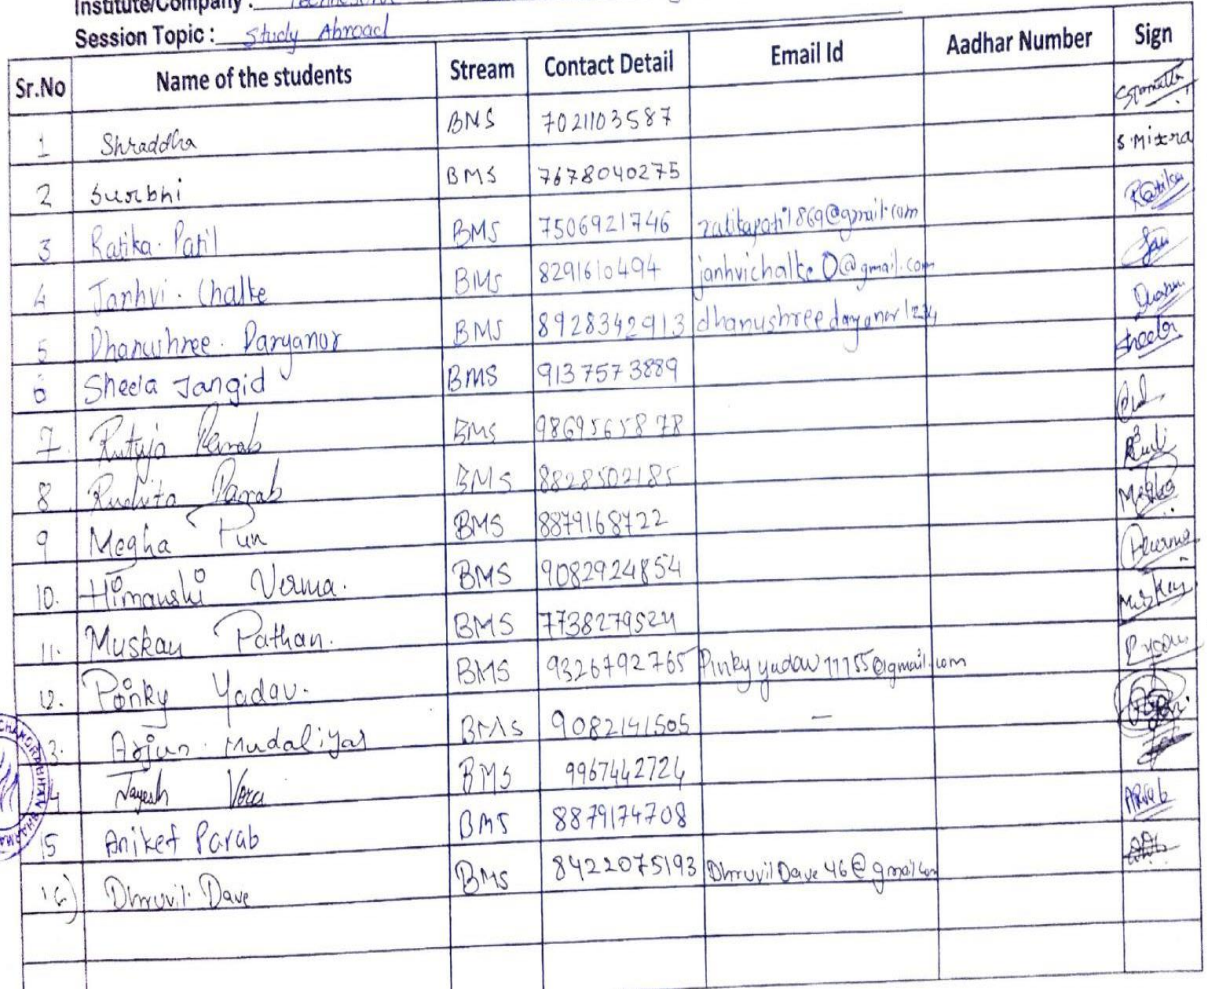 Institute/Company :
Session Topic : Study Abroad
Sr.No Name of the students Stream Contact Detail Email Id Aadhar Number Sign
1 Shraddha BMS 7021103587
2 Surbhi BMS 7678040275 S.Mixra
3 Ratika. Patil BMS 7506921746 ratikapatil869@gmail.com Ratika
4 Janhvi. Chalke BMS 8291610494 janhvichalke0@gmail.com
5 Dhanushree. Daryanor BMS 8928342913 dhanushreedaryanor1234
6 Sheela Jangid BMS 9137573889 Sheela
7. Rutuja Parab BMS 9869565878
8 Ruchita Parab BMS 8828502185
9 Megha Pun BMS 8879168722 Megha
10. Himanshi Verma. BMS 9082924854
11. Muskan Pathan. BMS 7738279524 Muskan
12. Pinky Yadav. BMS 9326792765 Pinkyyadav11155@gmail.com
13. Arjun. Mudaliyar BMS 9082141505 —
Jayesh Vora BMS 9967442724
15 Aniket Parab BMS 8879174708
16) Dhruvil Dave BMS 8422075193 DhruvilDave46@gmail.com